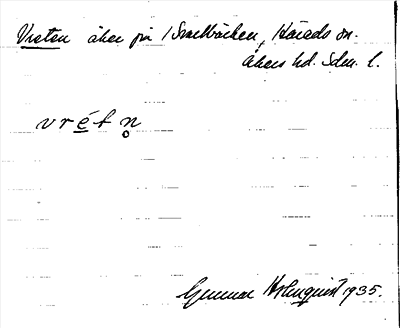 Vreten åker på Smedbacken, Härads sn.
Åkers hd. Sdm. l.
vrétn̥
Gunnar Holmquist 1935.